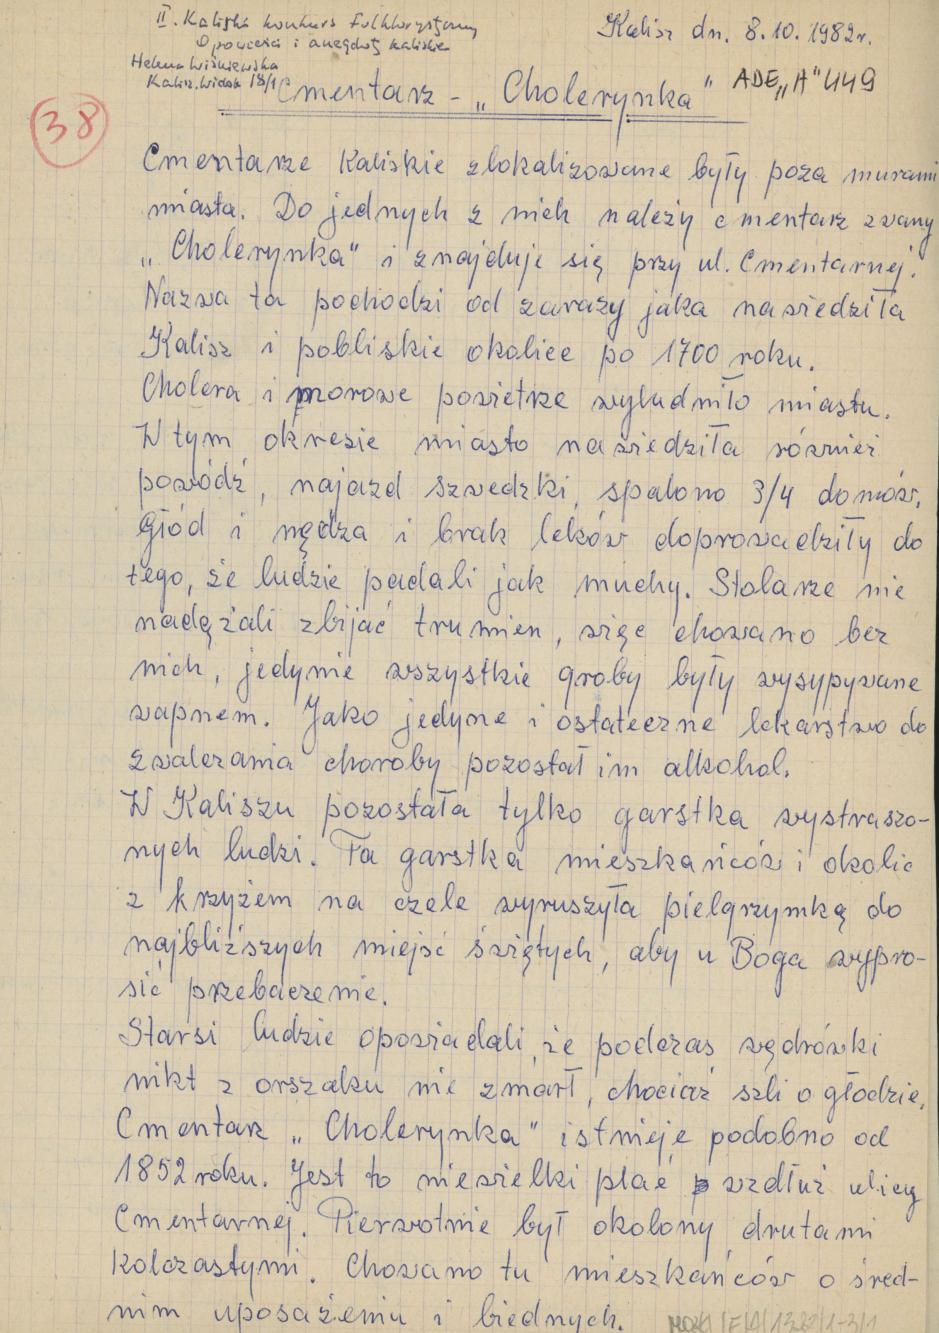 II. Kaliski konkurs Folklorystyczny
Opowieści i anegdoty kaliskie
Helena Wiśniewska
Kalisz, Widok 18/1
Kalisz dn. 8.10.1982r.
ADE "A" 449
38
Cmentarz - „Cholerynka"
Cmentarze Kaliskie zlokalizowane były poza murami
miasta. Do jednych z nich należy cmentarz zwany
„Cholerynka" i znajduje się przy ul. Cmentarnej.
Nazwa ta pochodzi od zarazy jaka nawiedziła
Kalisz i pobliskie okolice po 1700 roku.
Cholera i morowe powietrze wyludniło miasto.
W tym okresie miasto nawiedziła również
powódź, najazd szwedzki, spalono 3/4 domów.
Głód i nędza i brak leków doprowadziły do
tego, że ludzie padali jak muchy. Stolarze nie
nadążali zbijać trumien, więc chowano bez
nich, jedynie wszystkie groby były wysypywane
wapnem. Jako jedyne i ostateczne lekarstwo do
zwalczania choroby pozostał im alkohol.
W Kaliszu pozostała tylko garstka wystraszo-
nych ludzi. Ta garstka mieszkańców i okolic
z krzyżem na czele wyruszyła pielgrzymką do
najbliższych miejsc świętych, aby u Boga wypro-
sić przebaczenie.
Starsi ludzie opowiadali, że podczas wędrówki
nikt z orszaku nie zmarł, chociaż szli o głodzie.
Cmentarz „Cholerynka" istnieje podobno od
1852 roku. Jest to niewielki plac wzdłuż ulicy
Cmentarnej. Pierwotnie był okolony drutami
kolczastymi. Chowano tu mieszkańców o śred-
nim uposażeniu i biednych.